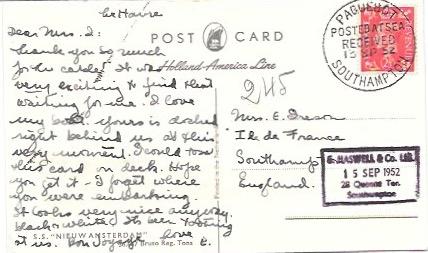 Le Havre
Dear Mrs. I:
Thank you so much
for the cable. It was
very exciting to find that
waiting for me. I love
my boat. Yours is docked
right behind us at this
very moment. I could toss
this card on deck. Hope
you get it. I forget where
you were embarking.
It looks very nice anyway,
black & white. It's been
at us. Bon Voyage love E.
S.S. "NIEUW AMSTERDAM"
POST CARD
Holland-America Line
245
Mrs. E.
Ile de France
Southampton
England.
PAQUEBOT
POSTED AT SEA
RECEIVED
15 SP 52
SOUTHAMPTON
REVENUE
E. MASWELL & Co. Ltd.
15 SEP 1952
28 Queens Ter.
Southampton